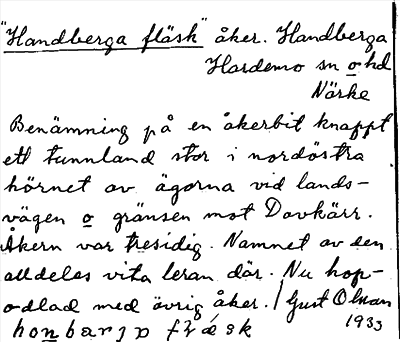 "Handberga fläsk" åker. Handberga
Hardemo sn o hd
Närke
Benämning på en åkerbit knappt
ett tunnland stor i nordöstra
hörnet av ägorna vid lands-
vägen o gränsen mot Dovkärr.
Åkern var tresidig. Namnet av den
alldeles vita leran där. Nu hop-
odlad med övrig åker. / Gust Olman
1933